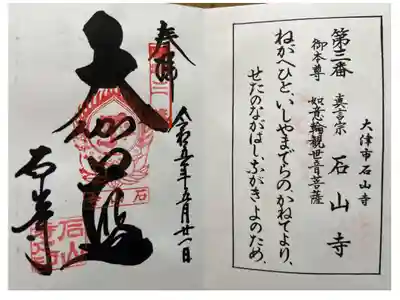 大津市石山寺
第三番 石山寺
真言宗
御本尊 如意輪観世音菩薩
ねがへひと、いしやまでらの、かねてより、
せたのながはし、ながきよのため、
奉拝
令和五年五月廿一日
大伽藍
石山寺